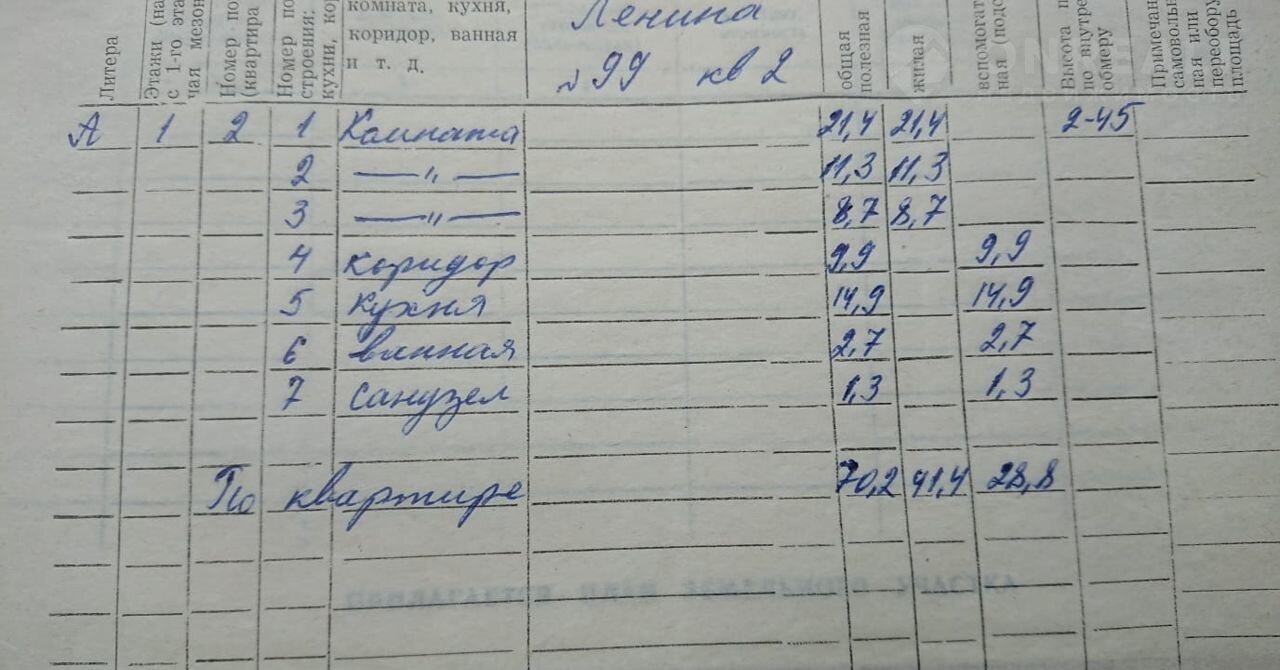 Литера
Этажи (на
с 1-го эта
чая мезон
Номер по
(квартира
Номер по
строения:
кухни, кор
комната, кухня,
коридор, ванная
и т. д.
Ленина
99 кв 2
общая
полезная
жилая
вспомогат
ная (подс
Высота п
по внутре
обмеру
Примечан
самовольн
ная или
переобору
площадь
А 1 2 1 Комната 21,4 21,4 2-45
2 —„— 11,3 11,3
3 —„— 8,7 8,7
4 коридор 9,9 9,9
5 кухня 14,9 14,9
6 ванная 2,7 2,7
7 санузел 1,3 1,3
По квартире 70,2 41,4 28,8
ПРИЛАГАЕТСЯ ПЛАН ЗЕМЕЛЬНОГО УЧАСТКА